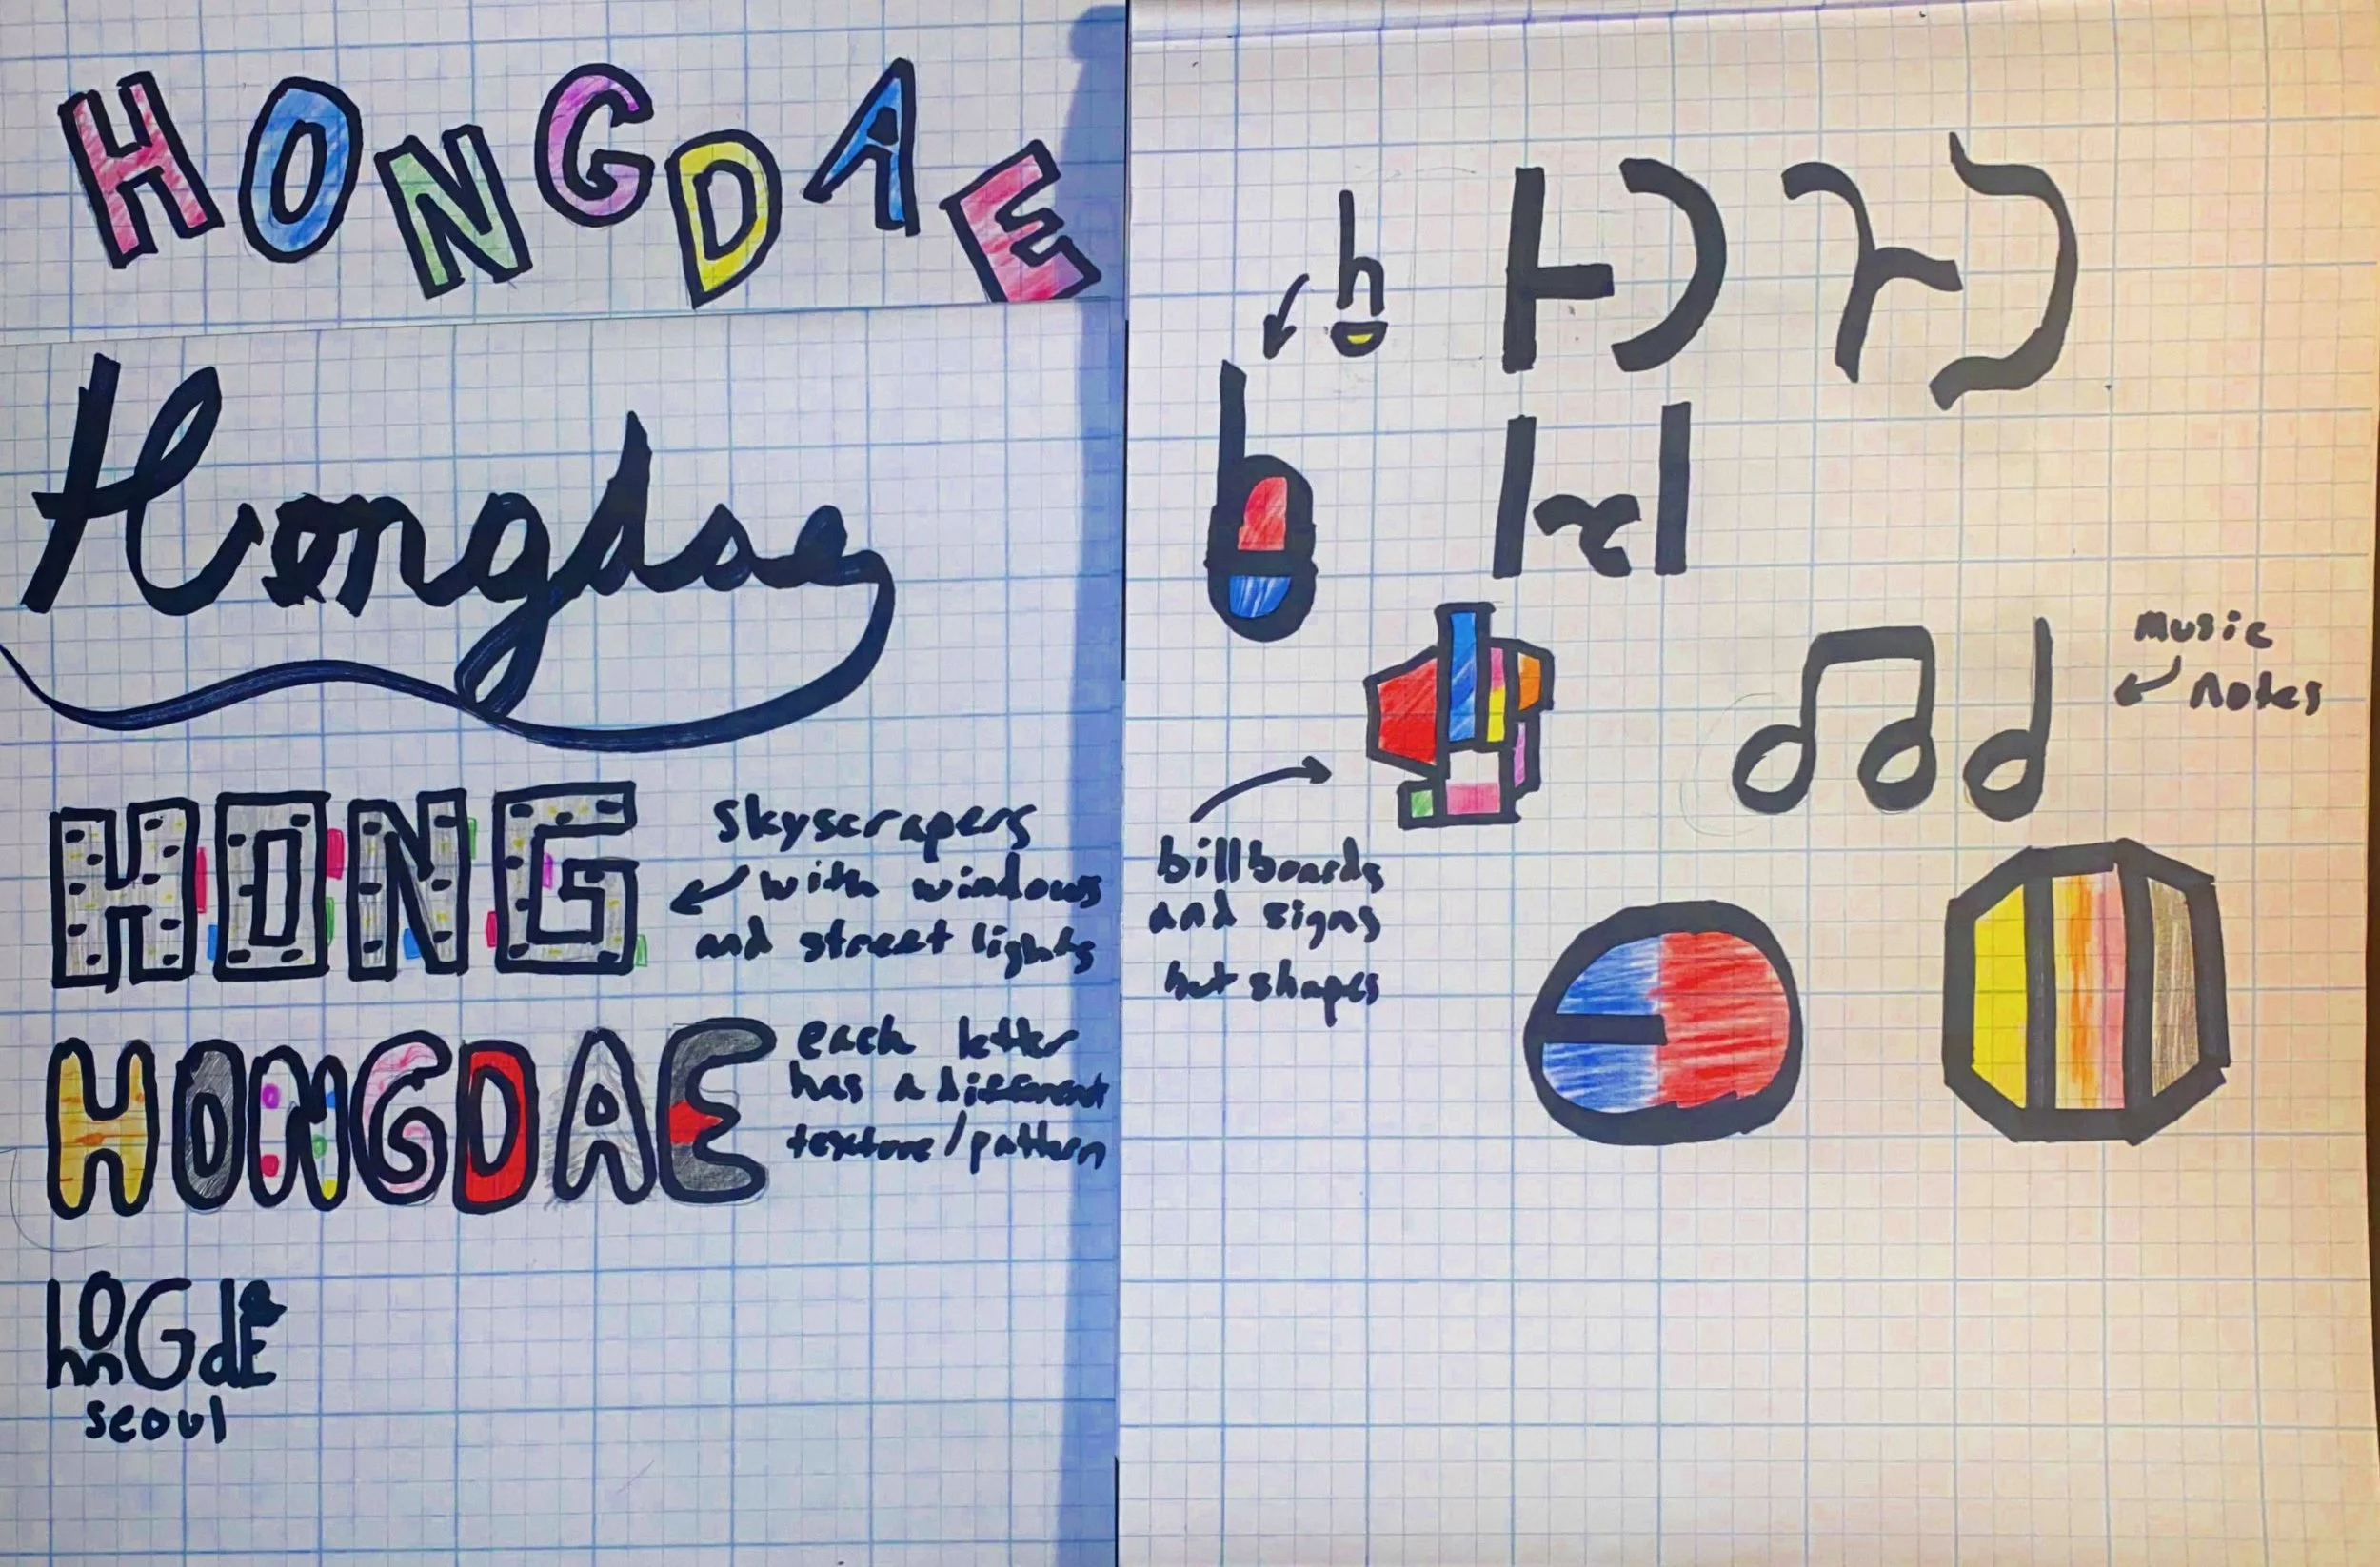 HONGDAE
Hongdae
HONG
skyscrapers
with windows
and street lights
HONGDAE
each letter
has a different
texture/pattern
honGdaE
seoul
h
music
notes
billboards
and signs
but shapes